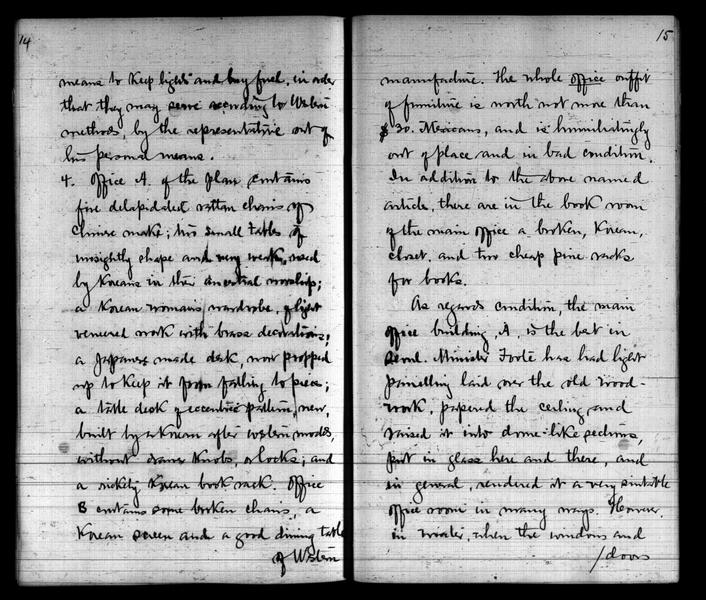 14
means to keep lights and buy fuel, in order
that they may serve according to Western
methods, by the representative out of
his personal means.
4. Office A. of the plan contains
five delapidated rattan chairs of
Chinese make; two small tables of
unsightly shape and very weak, used
by Koreans in their ancestral worship;
a Korean woman's wardrobe, of light
veneered work with brass decorations;
a Japanese made desk, now propped
up to keep it from falling to pieces;
a table desk of eccentric pattern, new,
built by a Korean after western models,
without drawer knobs, or locks; and
a rickety Korean book rack. Office
B contains some broken chairs, a
Korean screen and a good dining table
of Western
15
manufacture. The whole office outfit
of furniture is worth not more than
$30. Mexicans, and is humiliatingly
out of place and in bad condition.
In addition to the above named
article, there are in the book room
of the main office a broken, Korean,
closet, and two cheap pine racks
for books.
As regards condition, the main
office building, A, is the best in
Seoul. Minister Foote has had light
panelling laid over the old wood-
work, papered the ceiling and
raised it into dome-like sections,
put in glass here and there, and
in general, rendered it a very suitable
office room in many ways. However,
in winter, when the windows and
/doors